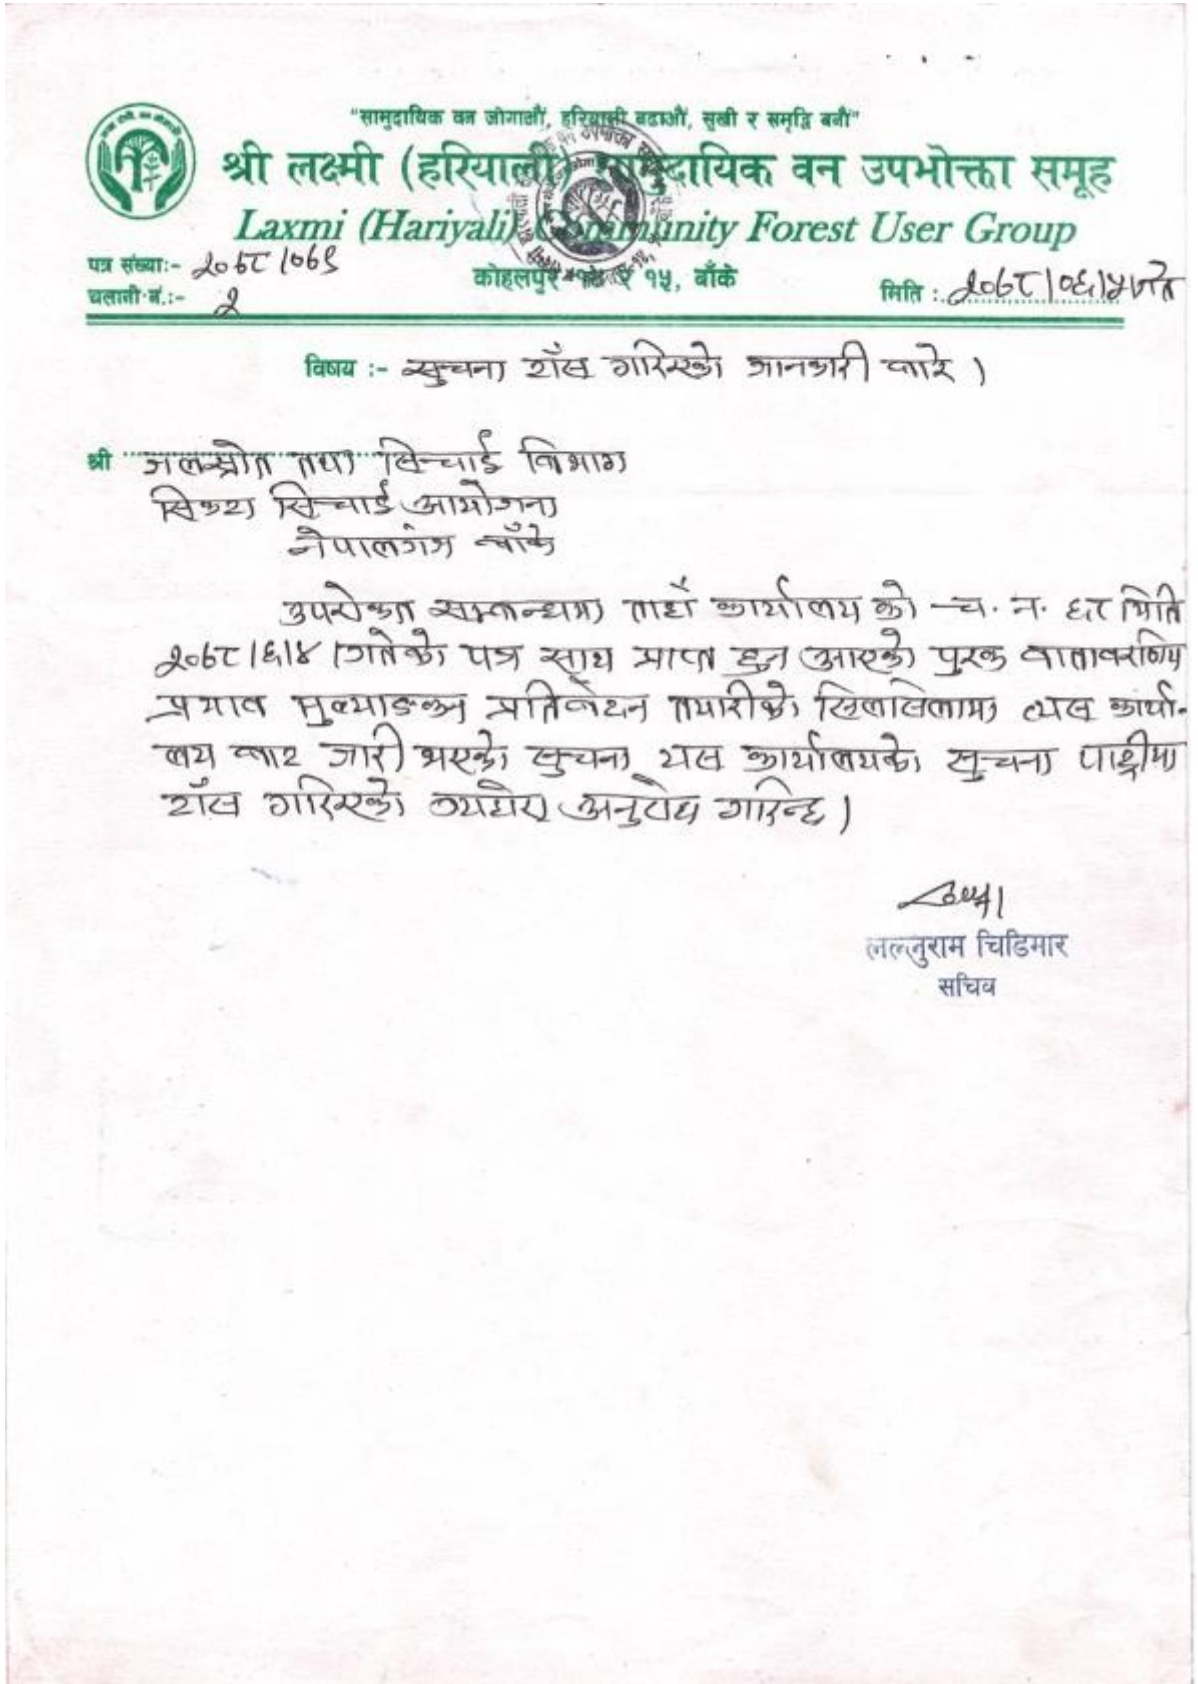 "सामुदायिक वन जोगाऔं, हरियाली बढाऔं, सुखी र समृद्धि बनौं"
श्री लक्ष्मी (हरियाली) सामुदायिक वन उपभोक्ता समूह
Laxmi (Hariyali) Community Forest User Group
पत्र संख्याः- २०७८/०७९
कोहलपुर १५, बाँके
चलानी नं.:- २
मिति : २०७८।०६।५ गते
विषय :- सुचना टाँस गरिएको जानकारी बारे ।
श्री जलस्रोत तथा सिन्चाई विभाग
सिक्टा सिन्चाई आयोजना
नेपालगंज बाँके
उपरोक्त सम्बन्धमा ताहाँ कार्यालय को च. न. ६८ मिति
२०७८।६।४ गतेको पत्र साथ प्राप्त हुन आएको पुरक वातावरणिय
प्रभाव मुल्याङकन प्रतिवेदन तयारीको सिलसिलामा त्यस कार्या-
लय बाट जारी भएको सुचना यस कार्यालयको सुचना पाटीमा
टाँस गरिएको व्यहोरा अनुरोध गरिन्छ ।
लल्लुराम चिडिमार
सचिव